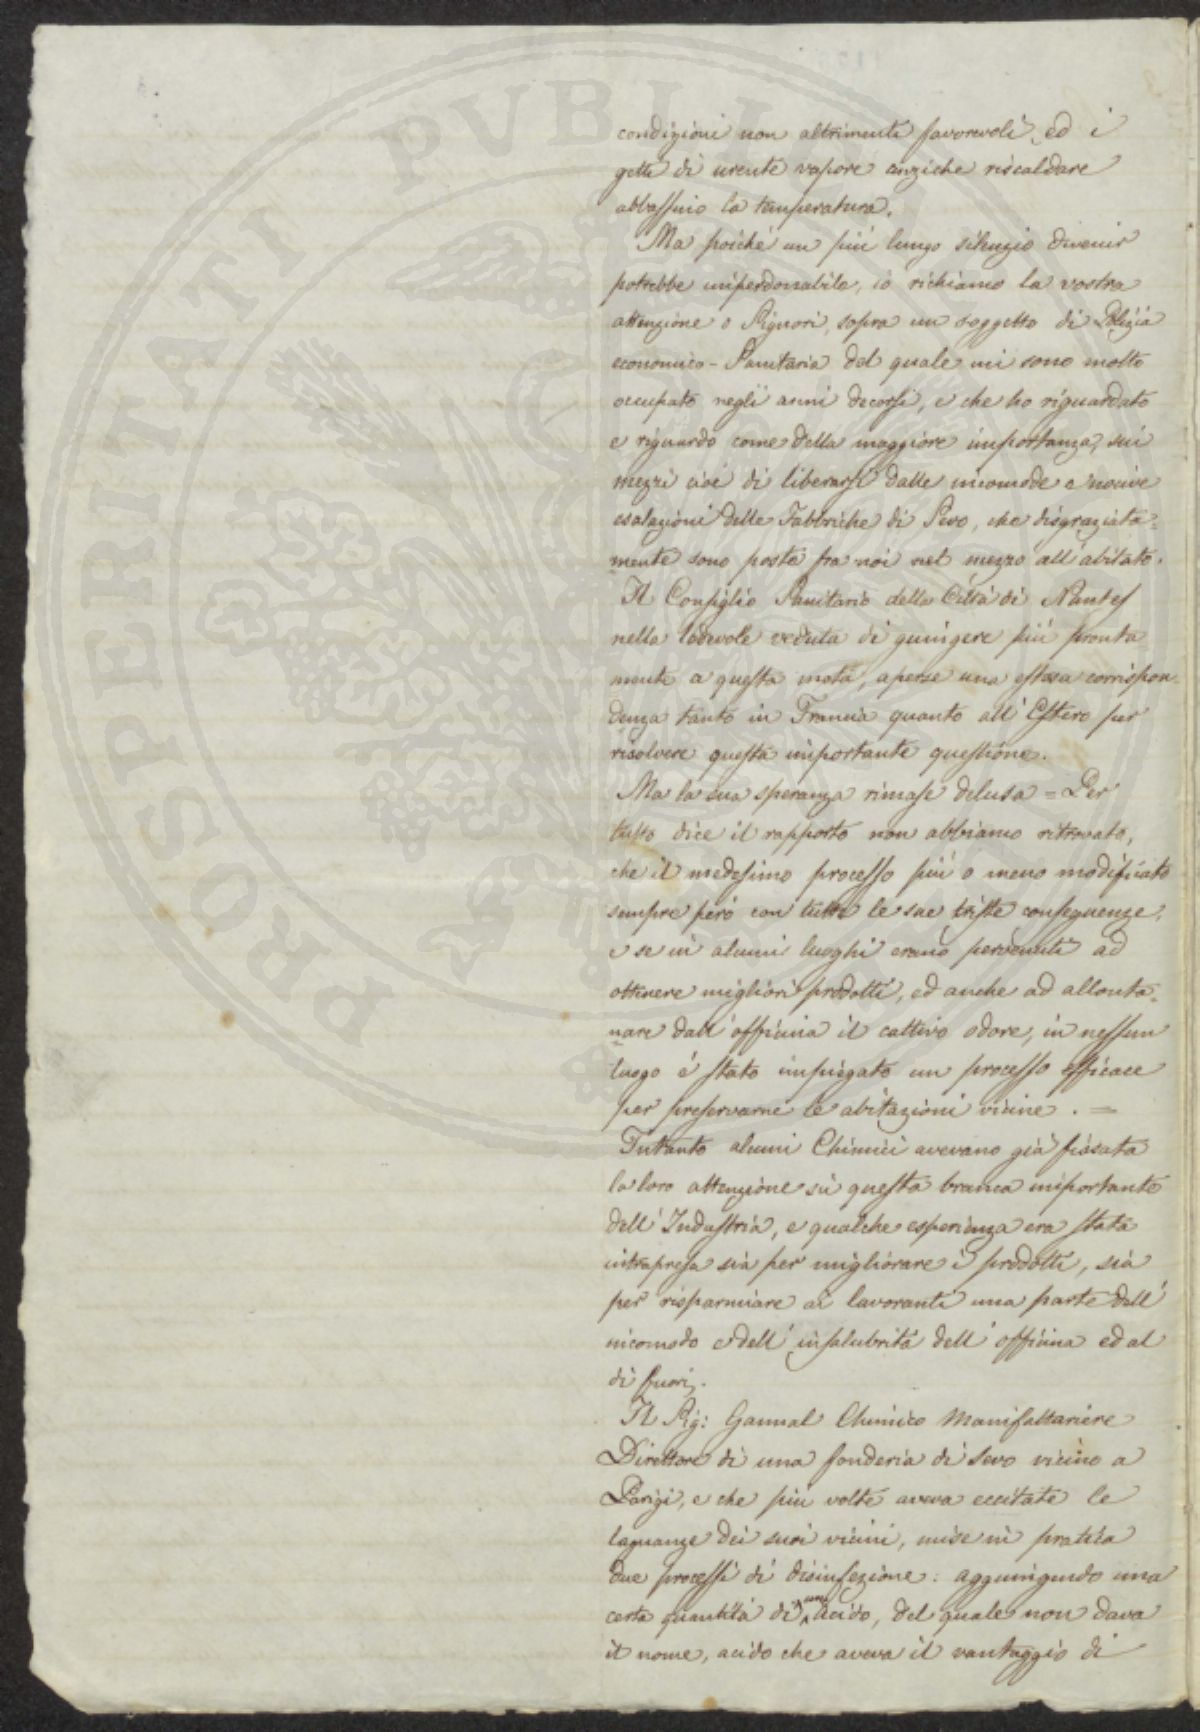 condizioni non altrimenti favorevoli, ed i
getti di urente vapore anziche riscaldare
abbassino la temperatura.
Ma poiché un piú lungo silenzio divenir
potrebbe imperdonabile, io richiamo la vostra
attenzione o Signori, sopra un soggetto di Polizia
economico-Sanitaria del quale mi sono molto
occupato negli anni decorsi, e che ho riguardato
e riguardo come della maggiore importanza, sui
mezzi cioé di liberarsi dalle incomode e nocive
esalazioni delle Fabbriche di Sevo, che disgraziata=
=mente sono poste fra noi nel mezzo all'abitato.
Il Consiglio Sanitario della Cittá di Nantes
nella lodevole veduta di giungere piú pronta
mente a questa meta, aperse una estesa corrispon
denza tanto in Francia quanto all'Estero per
risolvere questa importante questione.
Ma la sua speranza rimase delusa = Per
tutto dice il rapporto non abbiamo ritrovato,
che il medesimo processo piú o meno modificato
sempre peró con tutte le sue triste conseguenze,
e se in alcuni luoghi erano pervenuti ad
ottenere migliori prodotti, ed anche ad allonta=
=nare dall'officina il cattivo odore, in nessun
luogo é stato impiegato un processo efficace
per preservarne le abitazioni vicine. =
Intanto alcuni Chimici avevano giá fissata
la loro attenzione su questa branca importante
dell'Industria, e qualche esperienza era stata
intrapresa sia per migliorare i prodotti, sia
per risparmiare ai lavoranti una parte dell'
incomodo e dell'insalubritá dell'officina ed al
di fuori.
Il Sig: Gannal Chimico Manifatturiere
Direttore di una fonderia di Sevo vicino a
Parigi, e che piu volte aveva eccitate le
lagnanze dei suoi vicini, mise in pratica
due processi di disinfezione: aggiungendo una
certa quantitá di un acido, del quale non dava
il nome, acido che aveva il vantaggio di
PROSPERITATI PVBLICAE